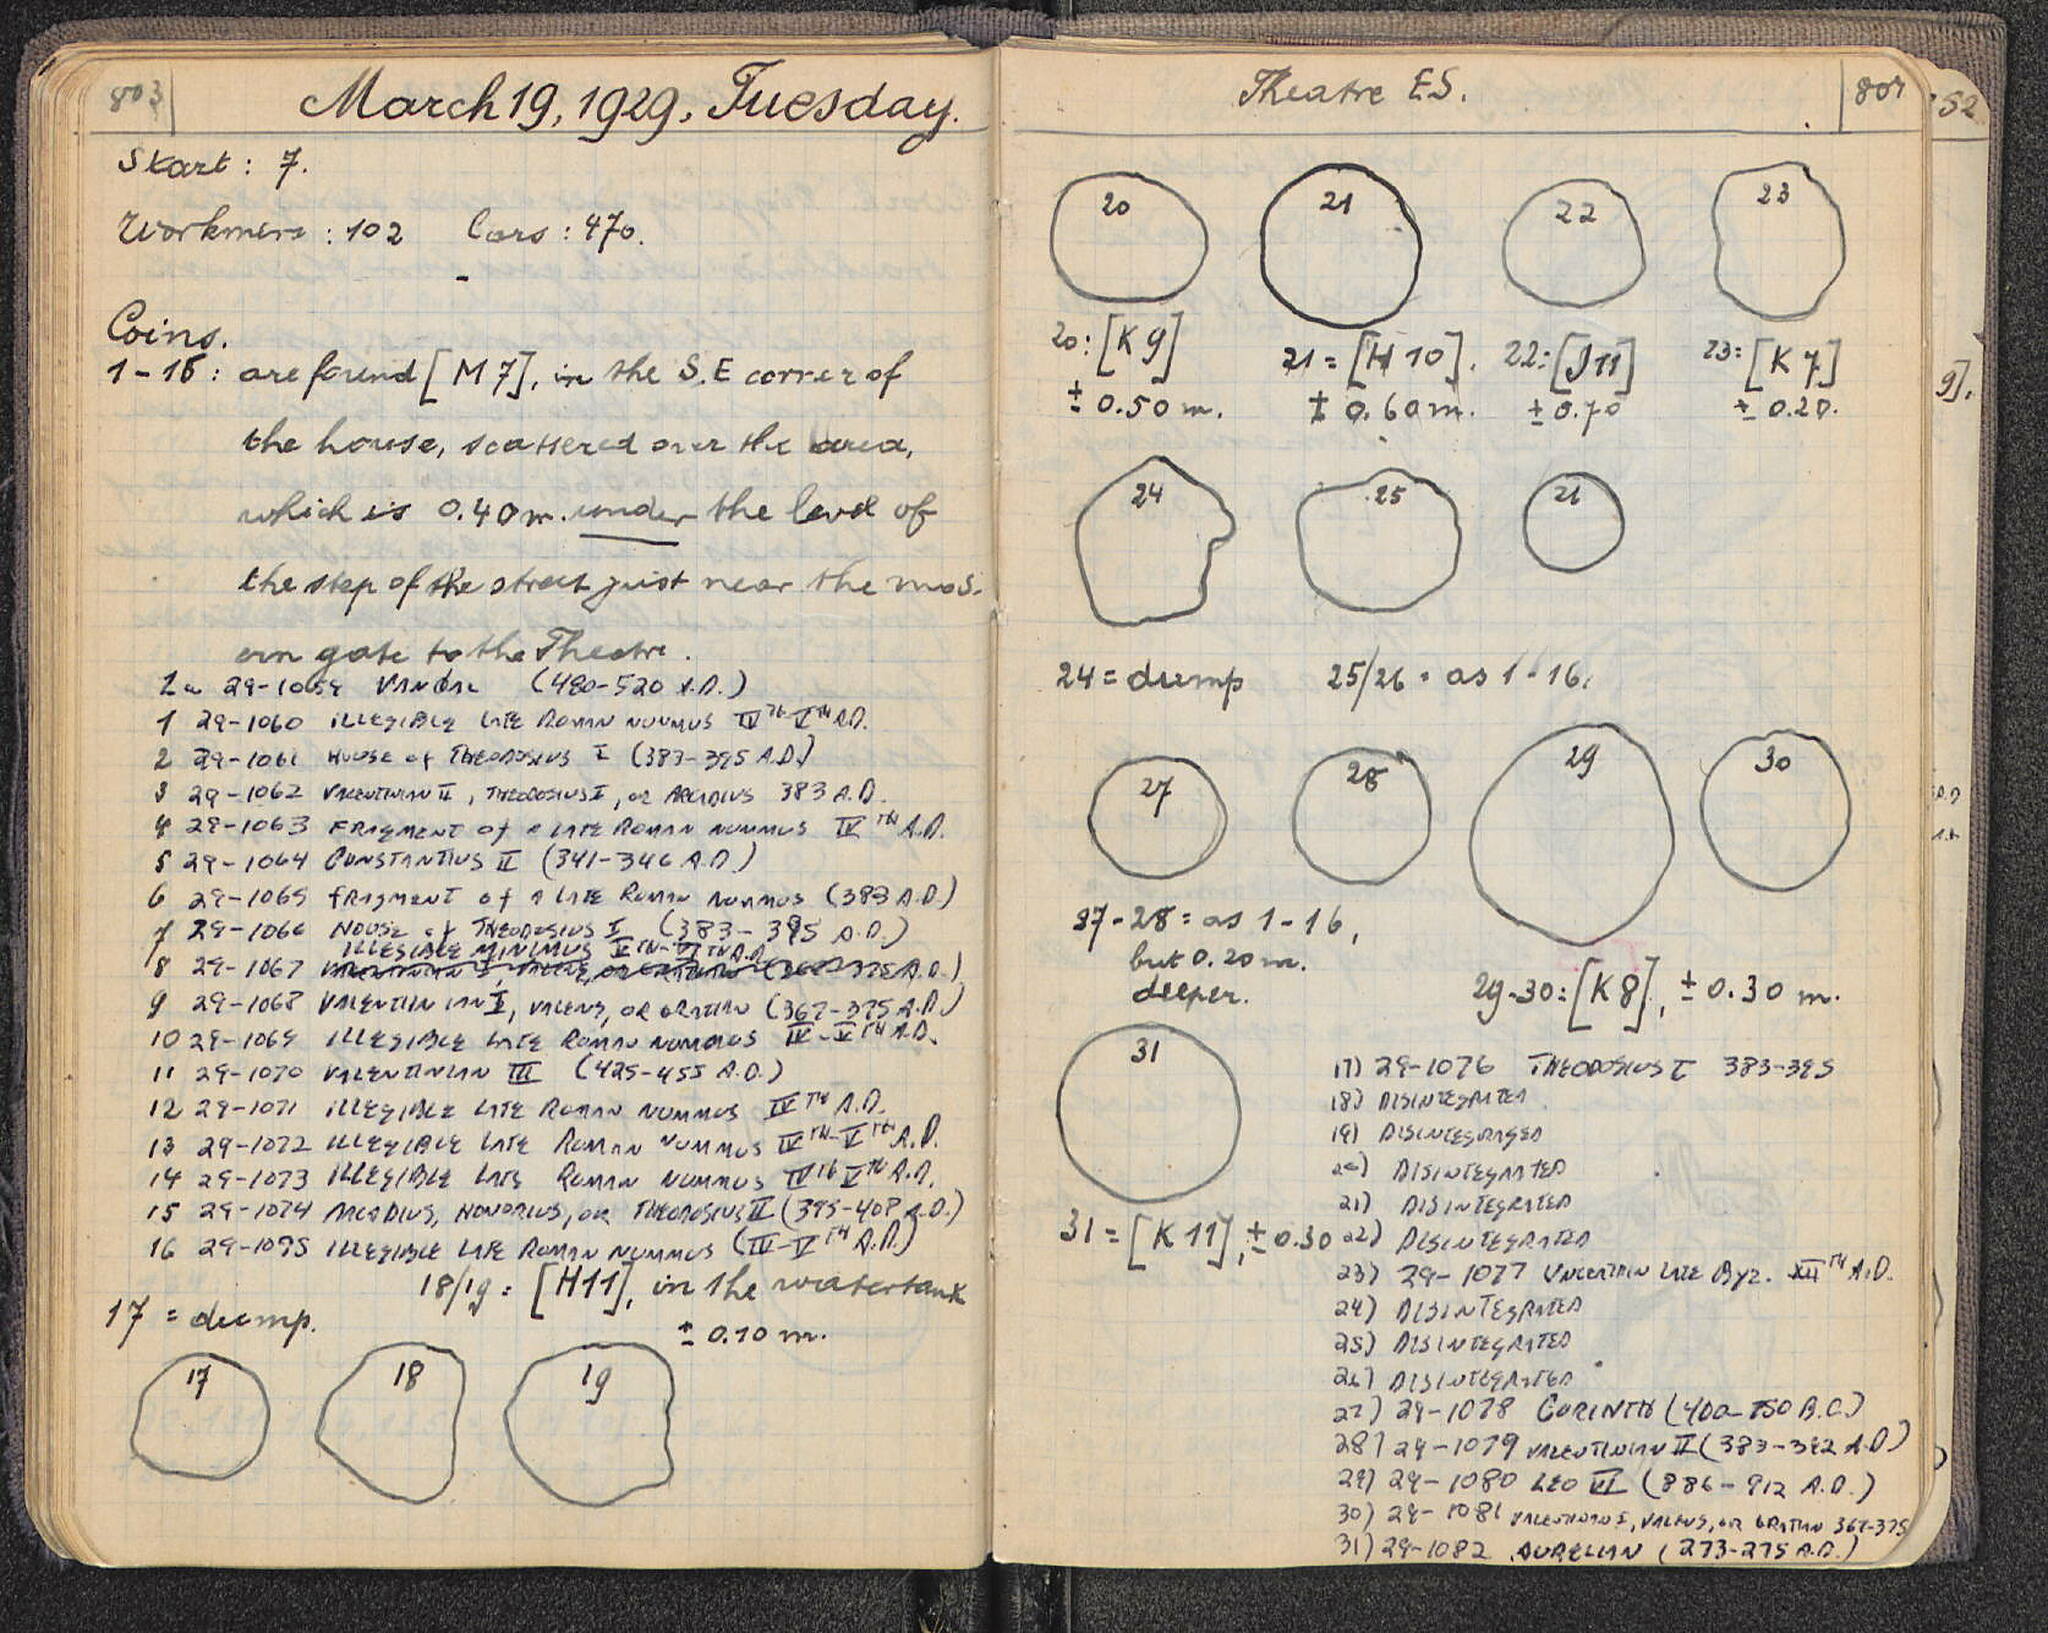 803
March 19, 1929, Tuesday.
Start: 7.
Workmen: 102 Cars: 470.
-
Coins.
1-16: are found [M 7], in the S.E corner of
the house, scattered over the area,
which is 0.40 m. under the level of
the step of the street just near the mod-
ern gate to the Theatre.
1a 29-1059 VANDAL (480-520 A.D.)
1 29-1060 ILLEGIBLE LATE ROMAN NUMMUS IVTH-VTH A.D.
2 29-1061 HOUSE OF THEODOSIUS I (383-395 A.D.)
3 29-1062 VALENTINIAN II, THEODOSIUS I, OR ARCADIUS 383 A.D.
4 29-1063 FRAGMENT OF A LATE ROMAN NUMMUS IVTH A.D.
5 29-1064 CONSTANTIUS II (341-346 A.D.)
6 29-1065 FRAGMENT OF A LATE ROMAN NUMMUS (383 A.D.)
7 29-1066 HOUSE OF THEODOSIUS I (383-395 A.D.)
ILLEGIBLE MINIMUS VTH-VITH A.D.
8 29-1067 VALENTINIAN I, VALENS, OR GRATIAN (367-375 A.D.)
9 29-1068 VALENTINIAN I, VALENS, OR GRATIAN (367-375 A.D.)
10 29-1069 ILLEGIBLE LATE ROMAN NUMMUS IV-VTH A.D.
11 29-1070 VALENTINIAN III (425-455 A.D.)
12 29-1071 ILLEGIBLE LATE ROMAN NUMMUS IVTH A.D.
13 29-1072 ILLEGIBLE LATE ROMAN NUMMUS IVTH-VTH A.D.
14 29-1073 ILLEGIBLE LATE ROMAN NUMMUS IVTH VTH A.D.
15 29-1074 ARCADIUS, HONORIUS, OR THEODOSIUS II (395-408 A.D.)
16 29-1075 ILLEGIBLE LATE ROMAN NUMMUS (IV-VTH A.D.)
18/19 = [H11], in the watertank
17 = dump. ± 0.10 m.
17 18 19
Theatre E.S. 804
20 21 22 23
20: [K 9] 21 = [H 10]. 22: [J 11] 23: [K 7]
± 0.50 m. ± 0.60 m. ± 0.70 ± 0.20.
24 25 26
24 = dump 25/26 = as 1-16.
27 28 29 30
27-28 = as 1-16,
but 0.20 m.
deeper.
29-30 = [K 8], ± 0.30 m.
31
31 = [K 11], ± 0.30
17) 29-1076 THEODOSIUS I 383-395
18) DISINTEGRATED
19) DISINTEGRATED
20) DISINTEGRATED
21) DISINTEGRATED
22) DISINTEGRATED
23) 29-1077 UNCERTAIN LATE BYZ. XIITH A.D.
24) DISINTEGRATED
25) DISINTEGRATED
26) DISINTEGRATED
27) 29-1078 CORINTH (400-150 B.C.)
28) 29-1079 VALENTINIAN II (383-392 A.D)
29) 29-1080 LEO VI (886-912 A.D.)
30) 29-1081 VALENTINIAN I, VALENS, OR GRATIAN 367-375
31) 29-1082 AURELIAN (273-275 A.D.)
52
9].